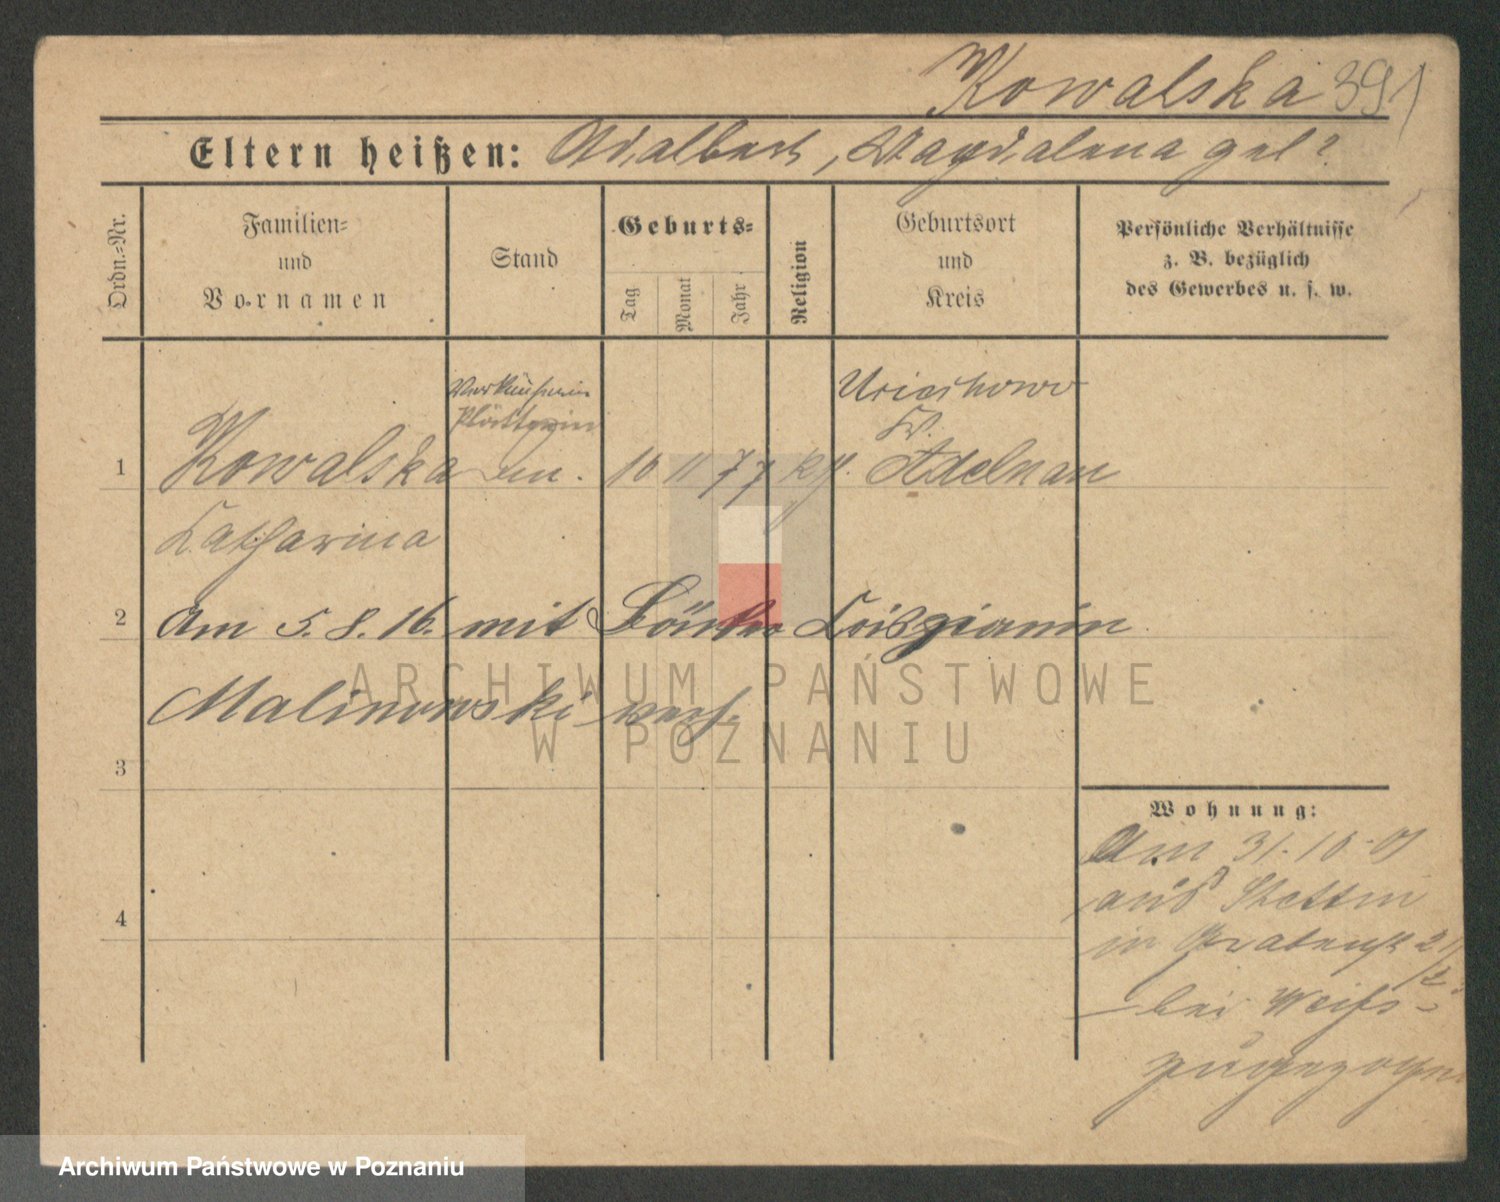 Kowalska 391
Eltern heißen: Adalbert, Magdalena gel?
Ordn.-Nr.
Familien-
und
Vornamen
Stand
Geburts-
Tag
Monat
Jahr
Religion
Geburtsort
und
Kreis
Persönliche Verhältnisse
z. B. bezüglich
des Gewerbes u. s. w.
Verkäuferin
Plätterin
1 Kowalska un. 10 11 77 kth. Adelnau
Catharina
2 Am 5. 8. 16. mit
Malinowski verh.
3
4
Wohnung:
Am 31.10.01
aus Stettin
in Grabenstr 21
/2.
bei Weiss
zugezogen
ARCHIWUM PAŃSTWOWE
W POZNANIU
Archiwum Państwowe w Poznaniu